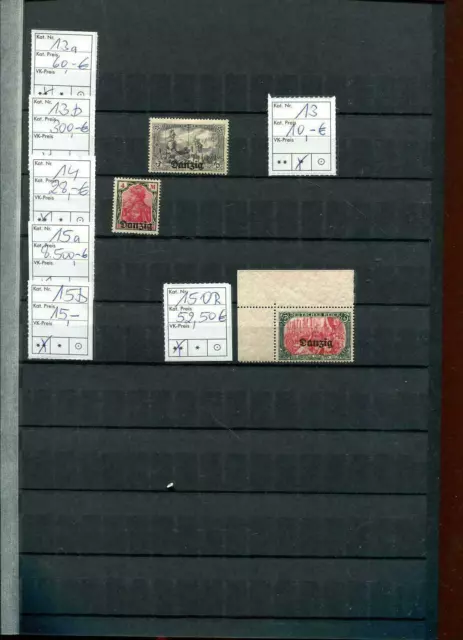 Kat. Nr.
13a
Kat. Preis
60-€
VK-Preis
Kat. Nr.
13b
Kat. Preis
300-€
VK-Preis
Kat. Nr.
13
Kat. Preis
10-€
VK-Preis
Danzig
Kat. Nr.
14
Kat. Preis
28-€
VK-Preis
Danzig
Kat. Nr.
15a
Kat. Preis
8.500-€
VK-Preis
Kat. Nr.
15b
Kat. Preis
15,-
VK-Preis
Kat. Nr.
15 UR
Kat. Preis
52,50€
VK-Preis
DEUTSCHES REICH
5
Danzig